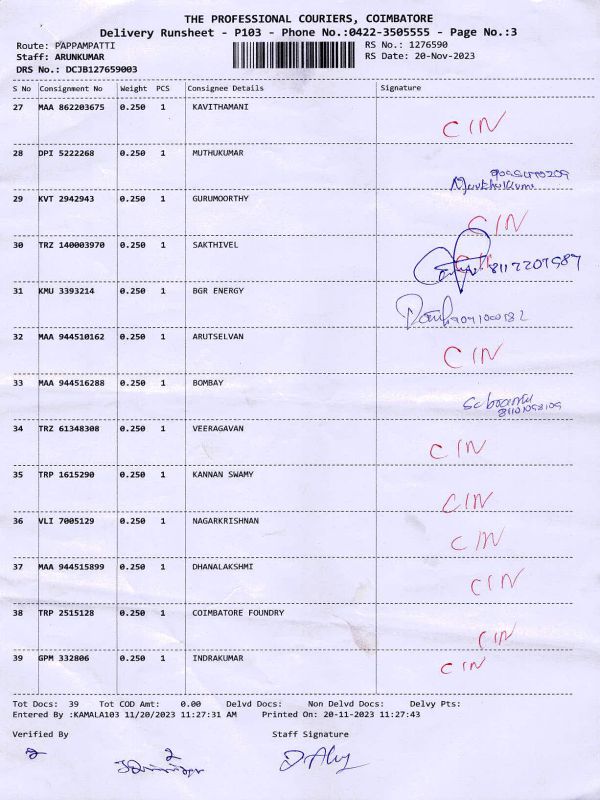 THE PROFESSIONAL COURIERS, COIMBATORE
Delivery Runsheet - P103 - Phone No.:0422-3505555 - Page No.:3
Route: PAPPAMPATTI RS No.: 1276590
Staff: ARUNKUMAR RS Date: 20-Nov-2023
DRS No.: DCJB127659003
S No Consignment No Weight PCS Consignee Details Signature
27 MAA 862203675 0.250 1 KAVITHAMANI
CIN
28 DPI 5222268 0.250 1 MUTHUKUMAR
29 KVT 2942943 0.250 1 GURUMOORTHY
CIN
30 TRZ 140003970 0.250 1 SAKTHIVEL
8112207987
31 KMU 3393214 0.250 1 BGR ENERGY
32 MAA 944510162 0.250 1 ARUTSELVAN
CIN
33 MAA 944516288 0.250 1 BOMBAY
34 TRZ 61348308 0.250 1 VEERAGAVAN
CIN
35 TRP 1615290 0.250 1 KANNAN SWAMY
CIN
36 VLI 7005129 0.250 1 NAGARKRISHNAN
CIN
37 MAA 944515899 0.250 1 DHANALAKSHMI
CIN
38 TRP 2515128 0.250 1 COIMBATORE FOUNDRY
CIN
39 GPM 332806 0.250 1 INDRAKUMAR
CIN
Tot Docs: 39 Tot COD Amt: 0.00 Delvd Docs: Non Delvd Docs: Delvy Pts:
Entered By :KAMALA103 11/20/2023 11:27:31 AM Printed On: 20-11-2023 11:27:43
Verified By Staff Signature